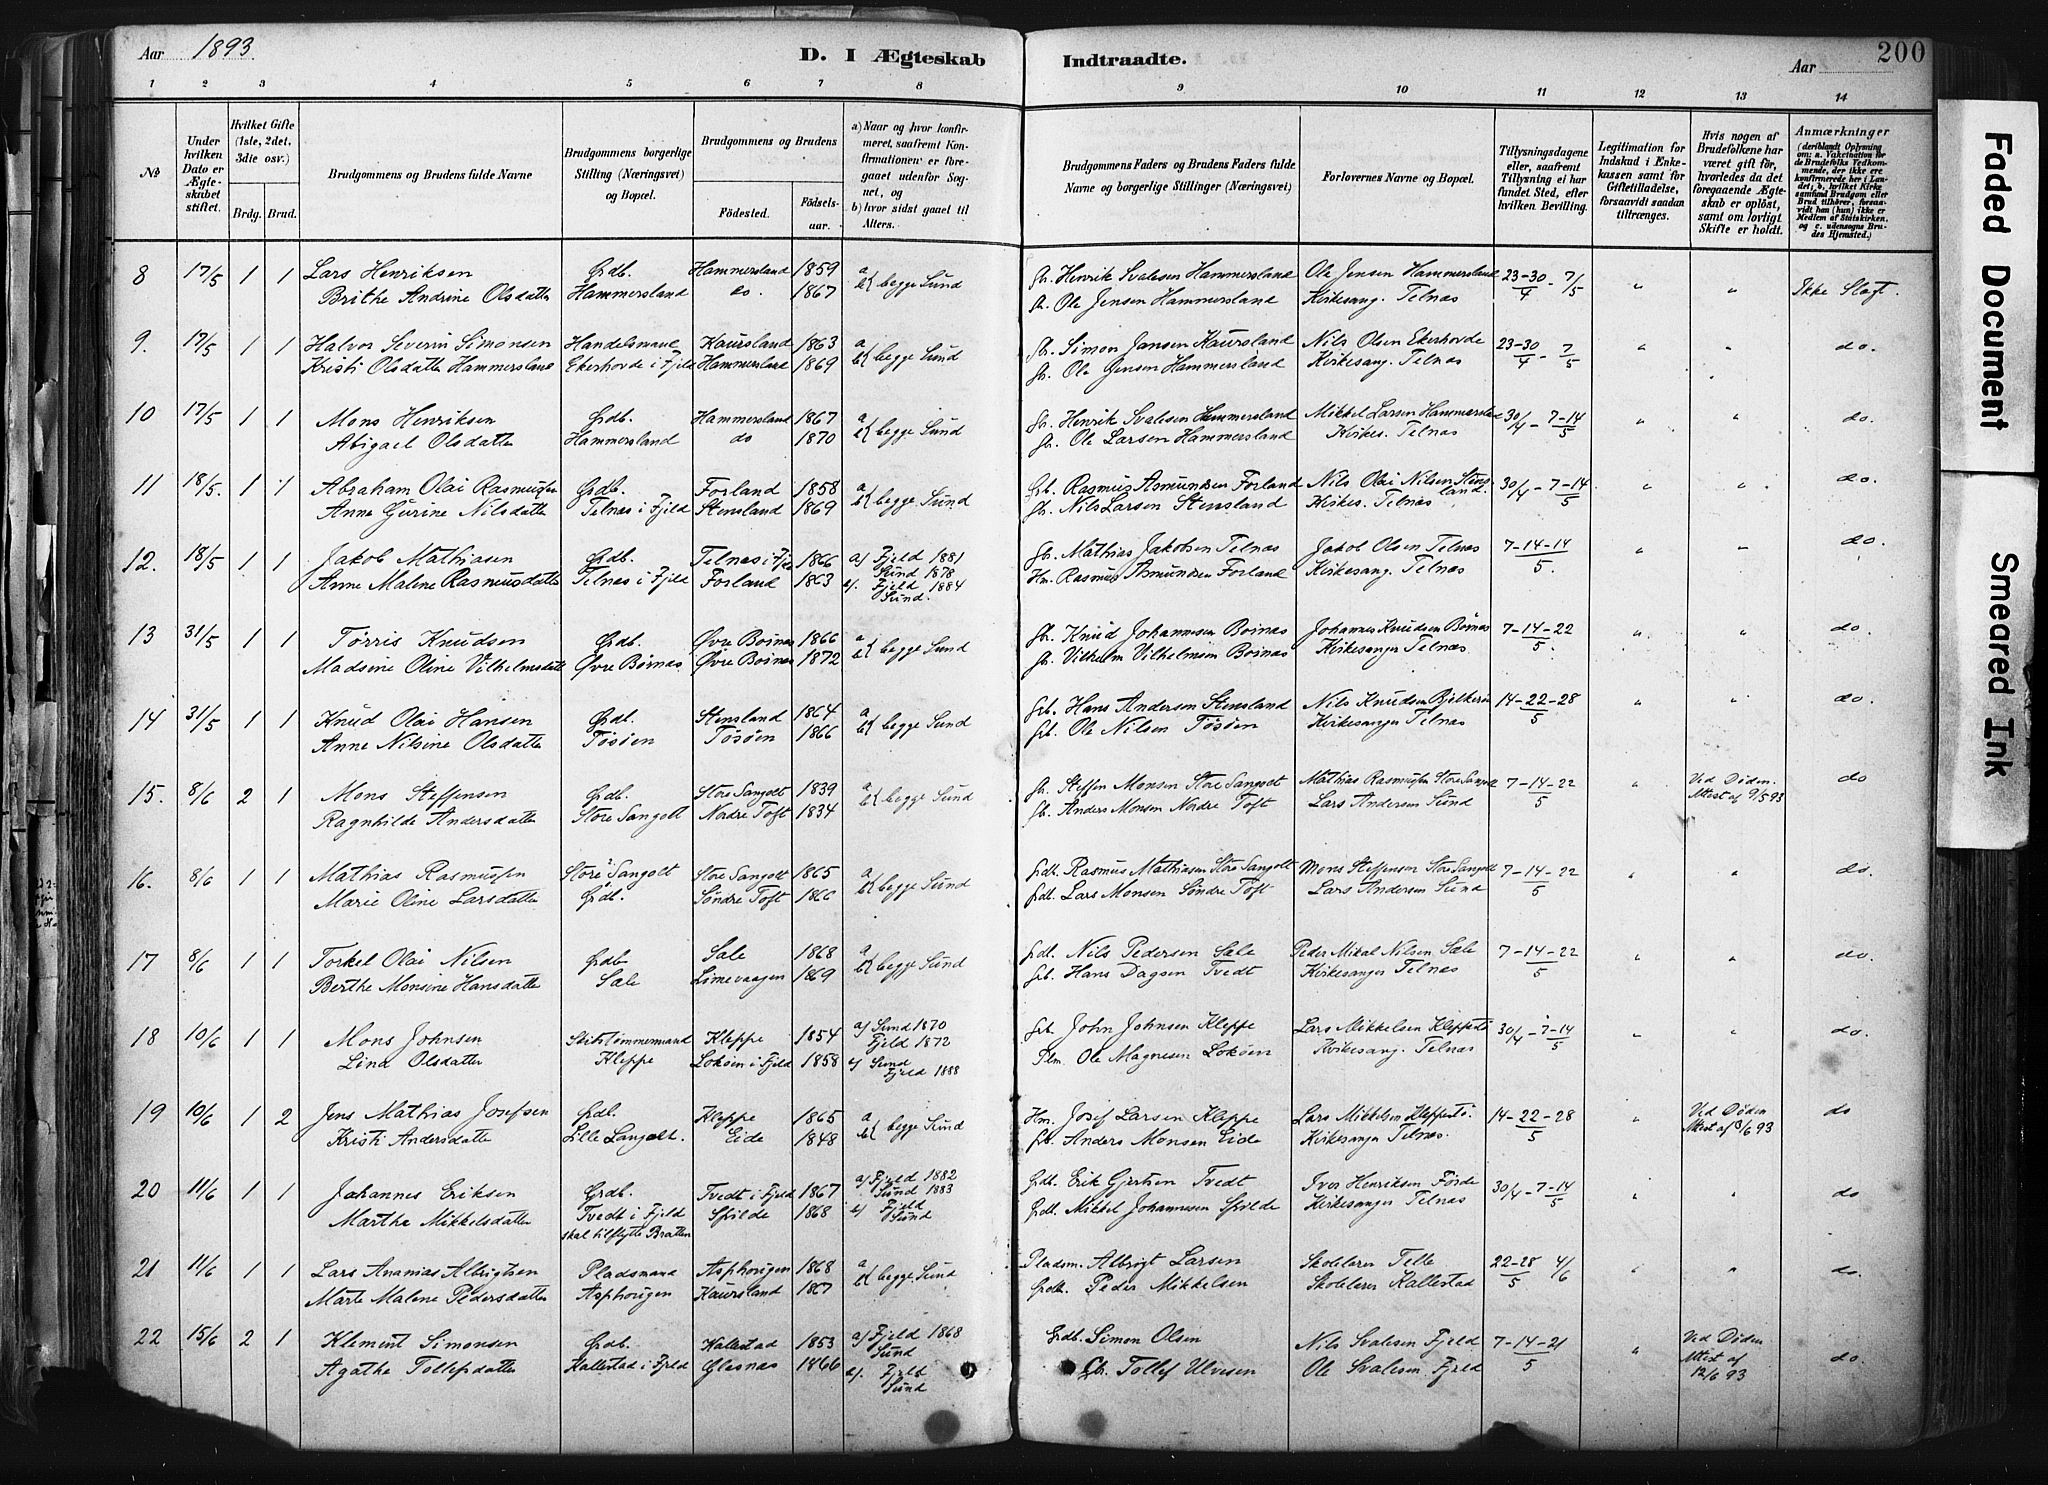 Aar 1893.
D. I Ægteskab
Indtraadte.
Aar
200
1 2 3 4 5 6 7 8 9 10 11 12 13 14
No
Under hvilken Dato er Ægteskabet stiftet.
Hvilket Gifte (1ste, 2det, 3die osv.)
Brdg. Brud.
Brudgommens og Brudens fulde Navne
Brudgommens borgerlige Stilling (Næringsvei) og Bopæl.
Brudgommens og Brudens
Fødested.
Fødselsaar.
a) Naar og hvor konfirmeret, saafremt Konfirmationen er foregaaet udenfor Sognet, og
b) hvor sidst gaaet til Alters.
Brudgommens Faders og Brudens Faders fulde Navne og borgerlige Stillinger (Næringsvei)
Forlovernes Navne og Bopæl.
Tillysningsdagene eller, saafremt Tillysning ei har fundet Sted, efter hvilken Bevilling.
Legitimation for Indskud i Enkekassen samt for Giftetilladelse, forsaavidt saadan tiltrænges.
Hvis nogen af Brudefolkene har været gift før, hvorledes da det foregaaende Ægteskab er opløst, samt om lovligt Skifte er holdt.
Anmærkninger (deriblandt Oplysning om: a. Vakcination for de Brudefolks Vedkommende, der ikke ere konfirmerede her i Landet; b. hvilket Kirkesamfund Brudgom eller Brud tilhører, forsaavidt han (hun) ikke er Medlem af Statskirken, og c. udensogns Brudes Hjemsted.)
8 17/5 1 1 Lars Henriksen Grdb. Hammersland 1859 a Gb. Henrik Svalesen Hammersland Ole Jensen Hammersland 23-30/4 - 7/5 " " Ikke Slægt.
Brithe Andrine Olsdatter Hammersland do. 1867 b { begge Sund Gb. Ole Jensen Hammersland Kirkesang. Telnæs
9. 17/5 1 1 Halvor Severin Simonsen Handelsmand Kaursland 1863 a Gb. Simon Jansen Kaursland Nils Olsen Ekerhovde 23-30/4 - 7/5 " " do.
Kristi Olsdatter Hammersland Ekerhovde i Fjeld Hammersland 1869 b { begge Sund Gb. Ole Jensen Hammersland Kirkesang. Telnæs
10 17/5 1 1 Mons Henriksen Grdb. Hammersland 1867 a Gb. Henrik Svalesen Hammersland Mikkel Larsen Hammersland 30/4 - 7-14/5 " " do.
Abigael Olsdatter Hammersland do 1870 b { begge Sund Gb. Ole Larsen Hammersland Kirkes. Telnæs
11 18/5. 1 1 Abraham Olai Rasmussen Grdb. Forland 1858 a Grb. Rasmus Asmundsen Forland Nils Olai Nilsen Stensland. 30/4 - 7-14/5 " " do.
Anne Gurine Nilsdatter Telnæs i Fjeld Stensland 1869 b { begge Sund Gb. Nils Larsen Stensland Kirkes. Telnæs
12. 18/5 1 1 Jakob Mathiasen Grdb. Telnæs i Fjeld 1866 a) Fjeld 1881 Gb. Mathias Jakobsen Telnæs Jakob Olsen Telnæs 7-14-14/5. " " do.
Sund 1878
Anne Malene Rasmusdatter Telnæs i Fjeld Forland 1863 b). Fjeld 1884 Hm. Rasmus Asmundsen Forland Kirkesang. Telnæs
Sund.
13 31/5 1 1 Torris Knudsen Grdb. Øvre Bornæs 1866 a Gb. Knud Johannesen Bornæs Johannes Knudsen Bornæs 7-14-22/5. " " do.
Madsine Oline Vilhelmsdatter Øvre Bornæs Øvre Bornæs 1872 b { begge Sund Gb. Vilhelm Vilhelmsen Bornæs Kirkesanger Telnæs
14 31/5 1 1 Knud Olai Hansen Grdb. Stensland 1864 a Grb. Hans Andersen Stensland Nils Knudsen 14-22-28/5 " " do.
Anne Nilsine Olsdatter Tösöen Tösöen 1866 b { begge Sund Grb. Ole Nilsen Tösöen Kirkesanger Telnæs
15. 8/6 2 1 Mons Steffensen Grdb. Store Sangolt 1839 a Gb. Steffen Monsen Store Sangolt Mathias Rasmussen Store Sangolt 7-14-22/5 " Ved Døden. Attest af 9/5 93 do
Ragnhilde Andersdatter Store Sangolt Nordre Toft 1834 b { begge Sund Gb. Anders Monsen Nordre Toft Lars Andersen Sund
16. 8/6 1 1 Mathias Rasmussen Store Sangolt Store Sangolt 1865 a Grdb. Rasmus Mathiasen Store Sangolt Mons Steffensen Store Sangolt 7-14-22/5 " " do.
Marie Oline Larsdatter Grdb. Söndre Toft 1866 b { begge Sund Grdb. Lars Monsen Söndre Toft Lars Andersen Sund
17 8/6 1 1 Torkel Olai Nilsen Grdb Sæle 1868 a Grdb. Nils Pedersen Sæle Peder Mikal Nilsen Sæle 7-14-22/5 " " do.
Berthe Monsine Hansdatter Sæle Limevaagen 1869 b { begge Sund Grb. Hans Dagsen Tvedt Kirkesanger Telnæs
18 10/6 1 1 Mons Johnsen Skibstømmermand Kleppe 1854 a) Sund 1870 Grb John Johnsen Kleppe Lars Mikkelsen Kleppestö 30/4 - 7-14/5 " " do.
Fjeld 1872
Lina Olsdatter Kleppe Loköen i Fjeld 1858 b) Sund Plm. Ole Magnesen Loköen Kirkesang. Telnæs
Fjeld 1888
19 10/6 1 2 Jens Mathias Josefsen Grdb. Kleppe 1865 a Hm. Josef Larsen Kleppe Lars Mikkelsen Kleppestö. 14-22-28/5 " Ved Døden Attest af 3/6 93 do
Kristi Andersdatter Lille Sangolt. Eide 1848 b { begge Sund Grb. Anders Monsen Eide Kirkesanger Telnæs.
20 11/6 1 1 Johannes Eriksen Grdb. Tvedt i Fjeld 1867 a) Fjeld 1882 Grdb. Erik Gjertsen Tvedt Iver Henriksen Förde 30/4 - 7-14/5 " " do
Sund 1883
Marthe Mikkelsdatter Tvedt i Fjeld Spilde 1868 b) Fjeld Grdb. Mikkel Johannesen Spilde Kirkesanger Telnæs
Sund
skal tilflytte Bratten
21 11/6 1 1 Lars Ananias Albrigtsen Pladsmand Asphovigen 1868 a Pladsm. Albrigt Larsen Skolelærer Telle 22-28/5 4/6 " " do.
Marte Malene Pedersdatter Asphovigen Kaursland 1867 b { begge Sund Grdb. Peder Mikkelsen Skolelærer Kallestad
22 15/6 2 1 Klement Simonsen Grdb. Kallestad 1853 a) Fjeld 1868 Grdb. Simon Olsen Nils Svalesen Fjeld 7-14-21/5 " Ved Døden Attest af 12/6 93 do.
Sund
Agathe Tollefsdatter Kallestad i Fjeld Glesnæs 1866 b). Fjeld Gb. Tollef Ulvesen Ole Svalesen Fjeld
Sund
Faded Document
Smeared Ink